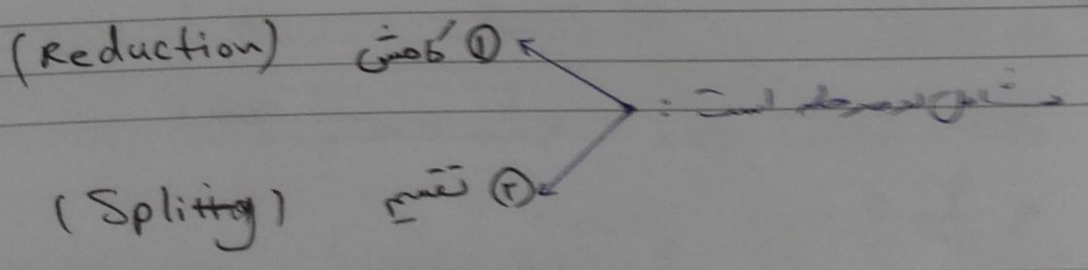 شامل دو مرحله است :
① کاهش (Reduction)
② تقسیم (Splitting)